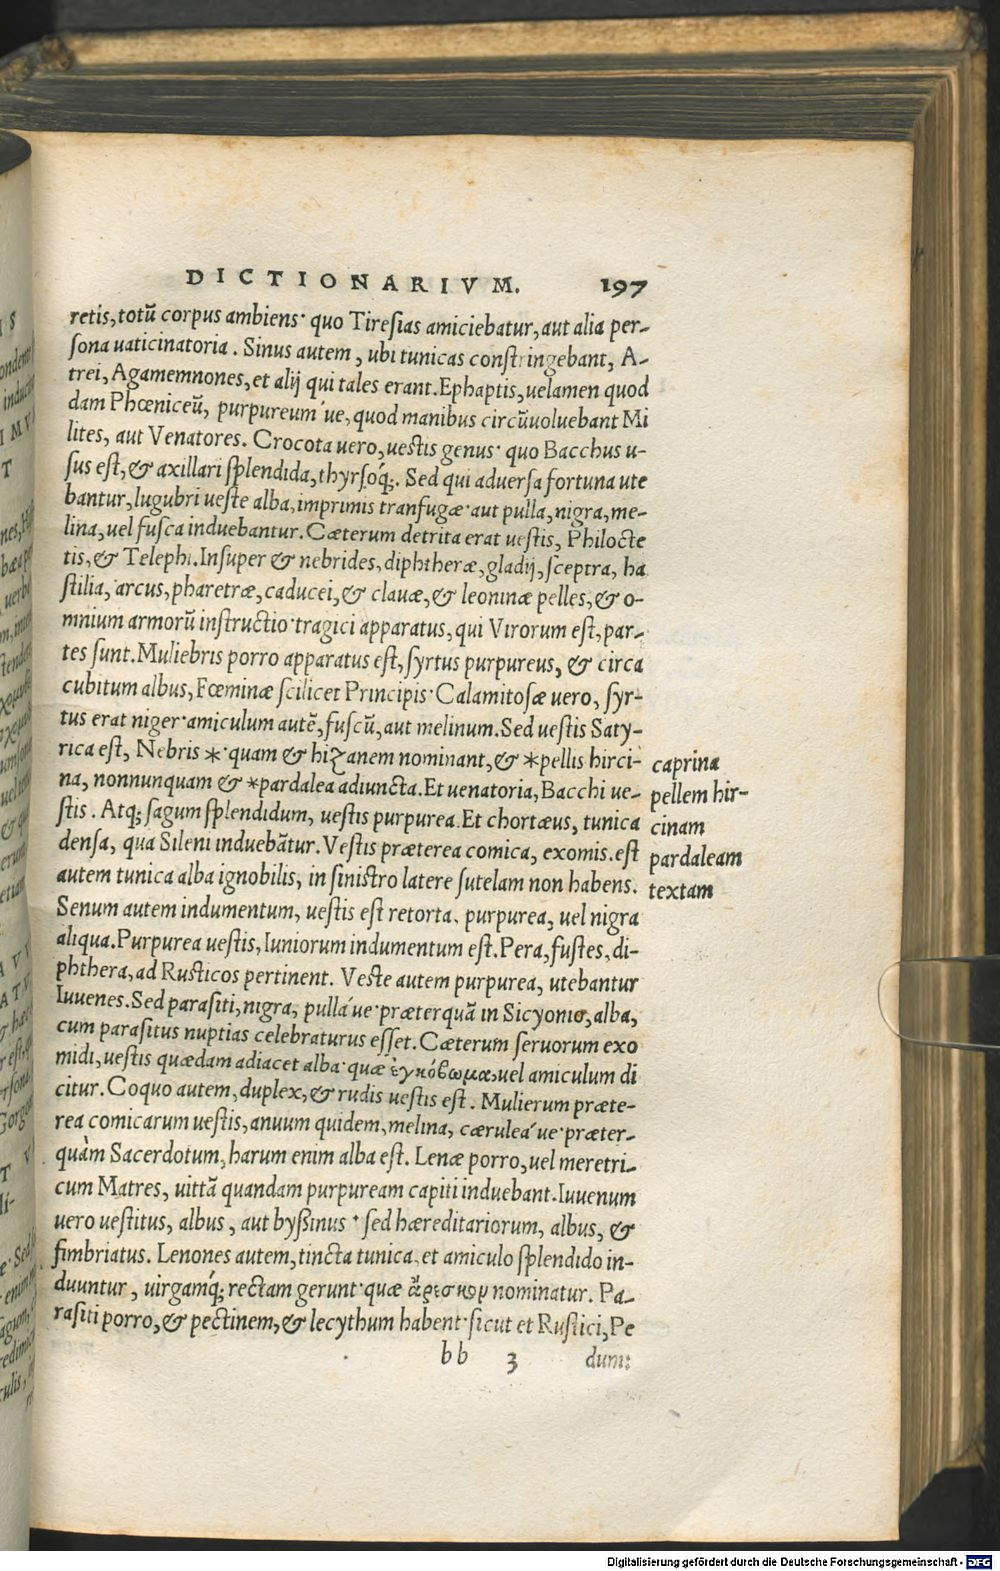 DICTIONARIVM. 197
retis, totū corpus ambiens· quo Tiresias amiciebatur, aut alia per-
sona uaticinatoria. Sinus autem, ubi tunicas constringebant, A-
trei, Agamemnones, et alij qui tales erant. Ephaptis, uelamen quod
dam Phœniceū, purpureum´ue, quod manibus circūuoluebant Mi
lites, aut Venatores. Crocota uero, uestis genus· quo Bacchus u-
sus est, & axillari splendida, thyrsoq́;. Sed qui aduersa fortuna ute
bantur, lugubri ueste alba, imprimis tranfugæ· aut pulla, nigra, me-
lina, uel fusca induebantur. Cæterum detrita erat uestis, Philocte
tis, & Telephi. Insuper & nebrides, diphtheræ, gladij, sceptra, ha
stilia, arcus, pharetræ, caducei, & clauæ, & leoninæ pelles, & o-
mnium armorū instructio· tragici apparatus, qui Virorum est, par-
tes sunt. Muliebris porro apparatus est, syrtus purpureus, & circa
cubitum albus, Fœminæ scilicet Principis· Calamitosæ uero, syr-
tus erat niger· amiculum autē, fuscū, aut melinum. Sed uestis Saty-
rica est, Nebris *· quam & hizanem nominant, & *pellis hirci-
na, nonnunquam & *pardalea adiuncta. Et uenatoria, Bacchi ue-
stis. Atq; sagum splendidum, uestis purpurea. Et chortæus, tunica
densa, qua Sileni induebātur. Vestis præterea comica, exomis. est
autem tunica alba ignobilis, in sinistro latere sutelam non habens.
Senum autem indumentum, uestis est retorta, purpurea, uel nigra
aliqua. Purpurea uestis, Iuniorum indumentum est. Pera, fustes, di-
phthera, ad Rusticos pertinent. Veste autem purpurea, utebantur
Iuuenes. Sed parasiti, nigra, pulla´ue· præterquā in Sicyonio, alba,
cum parasitus nuptias celebraturus esset. Cæterum seruorum exo
midi, uestis quædam adiacet alba· quæ ἐγκόβωμα, uel amiculum di
citur. Coquo autem, duplex, & rudis uestis est. Mulierum præte-
rea comicarum uestis, anuum quidem, melina, cærulea´ue· præter-
quàm Sacerdotum, harum enim alba est. Lenæ porro, uel meretri-
cum Matres, uittā quandam purpuream capiti induebant. Iuuenum
uero uestitus, albus, aut byssinus· sed hæreditariorum, albus, &
fimbriatus. Lenones autem, tincta tunica, et amiculo splendido in-
duuntur, uirgamq́; rectam gerunt· quæ ἄρεσκον nominatur. Pa-
rasiti porro, & pectinem, & lecythum habent· sicut et Rustici, Pe
bb 3 dum:
caprina
pellem hir-
cinam
pardaleam
textam
Digitalisierung gefördert durch die Deutsche Forschungsgemeinschaft - DFG